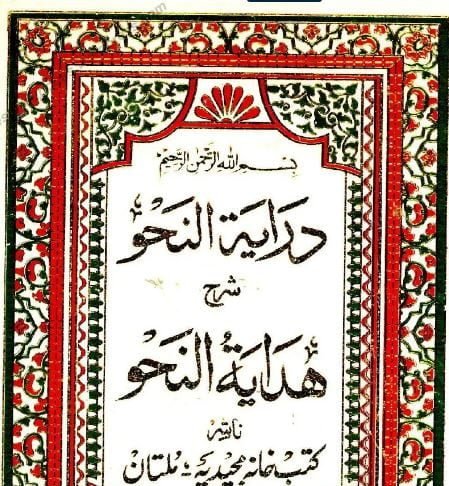 بسم الله الرحمن الرحيم
دراية النحو
شرح
هداية النحو
ناشر
کتب خانہ مجیدیہ ؛ ملتان